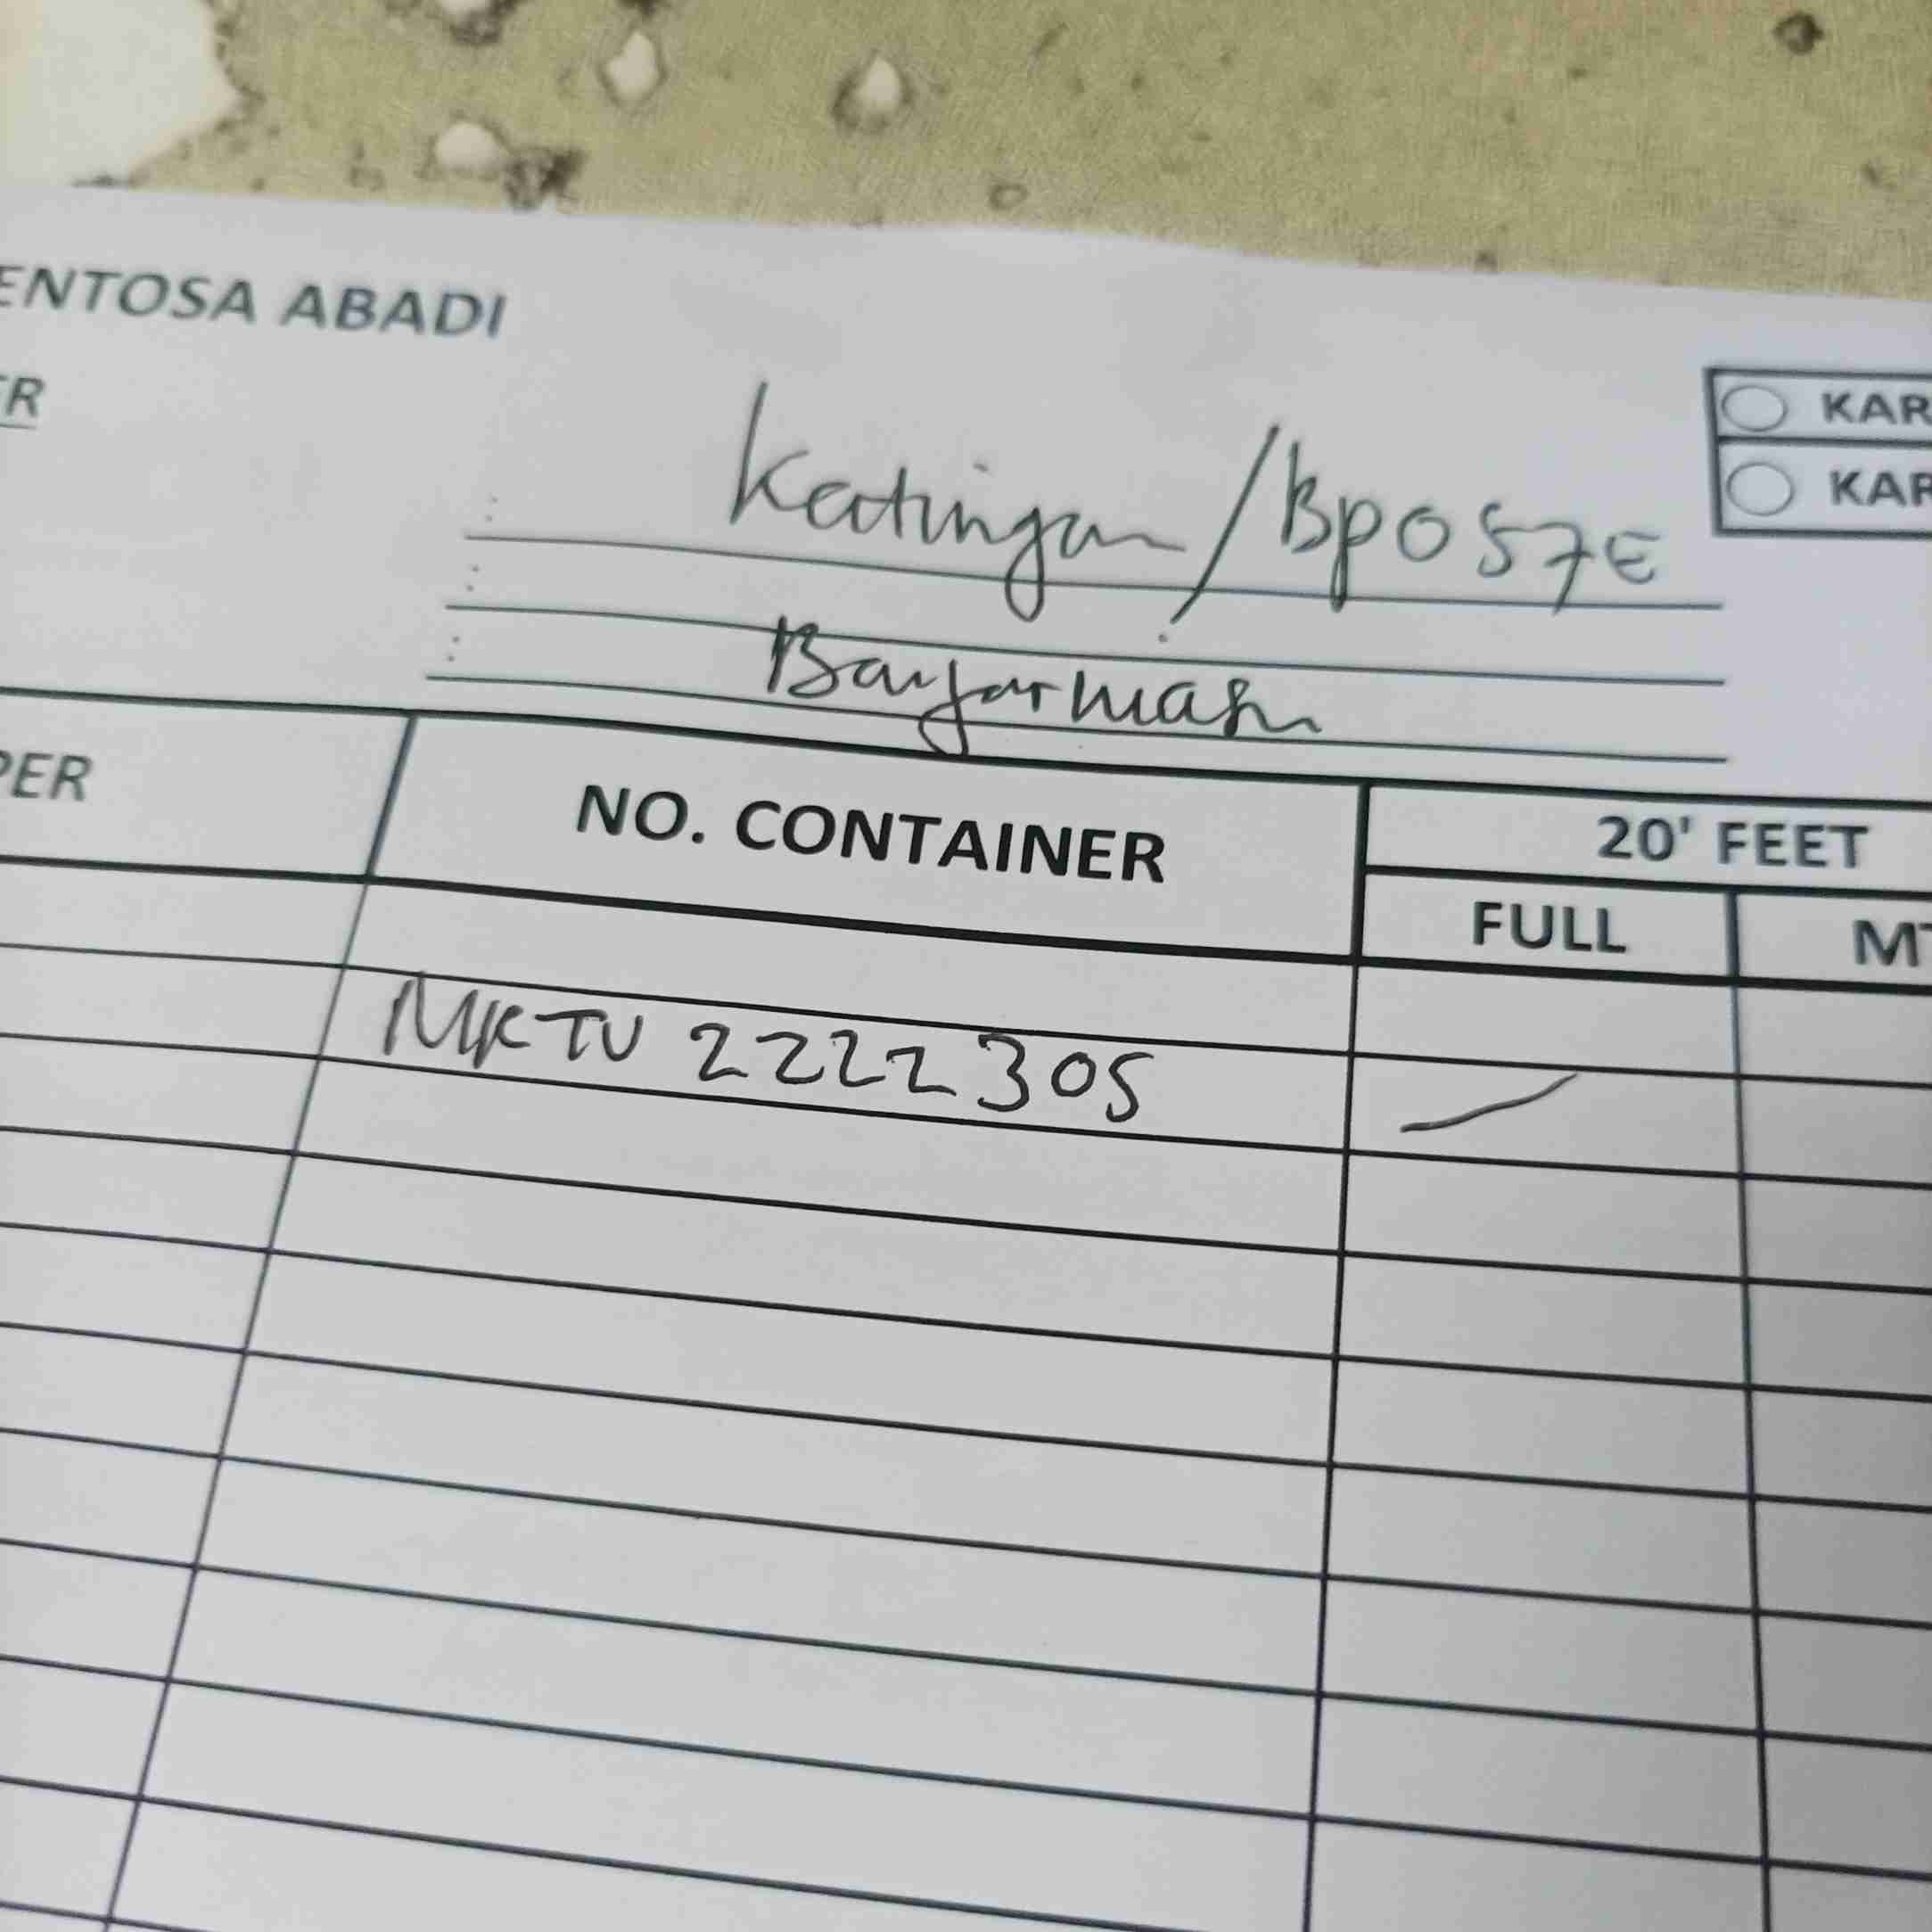 ENTOSA ABADI
ER
KAR
KAR
: Katingan/BP057E
:
: Banjarmasin
PER
NO. CONTAINER
20' FEET
FULL
MT
MRTU 2222305